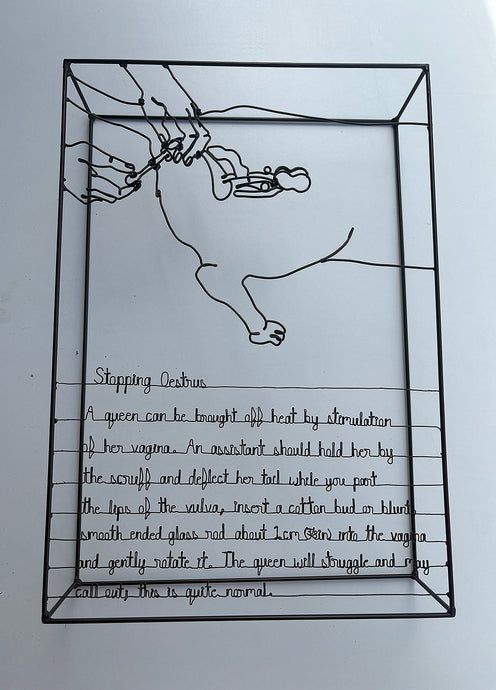 Stopping Oestrus
A queen can be brought off heat by stimulation
of her vagina. An assistant should hold her by
the scruff and deflect her tail while you part
the lips of the vulva, insert a cotton bud or blunt
smooth ended glass rod about 1cm into the vagina
and gently rotate it. The queen will struggle and may
call out, this is quite normal.